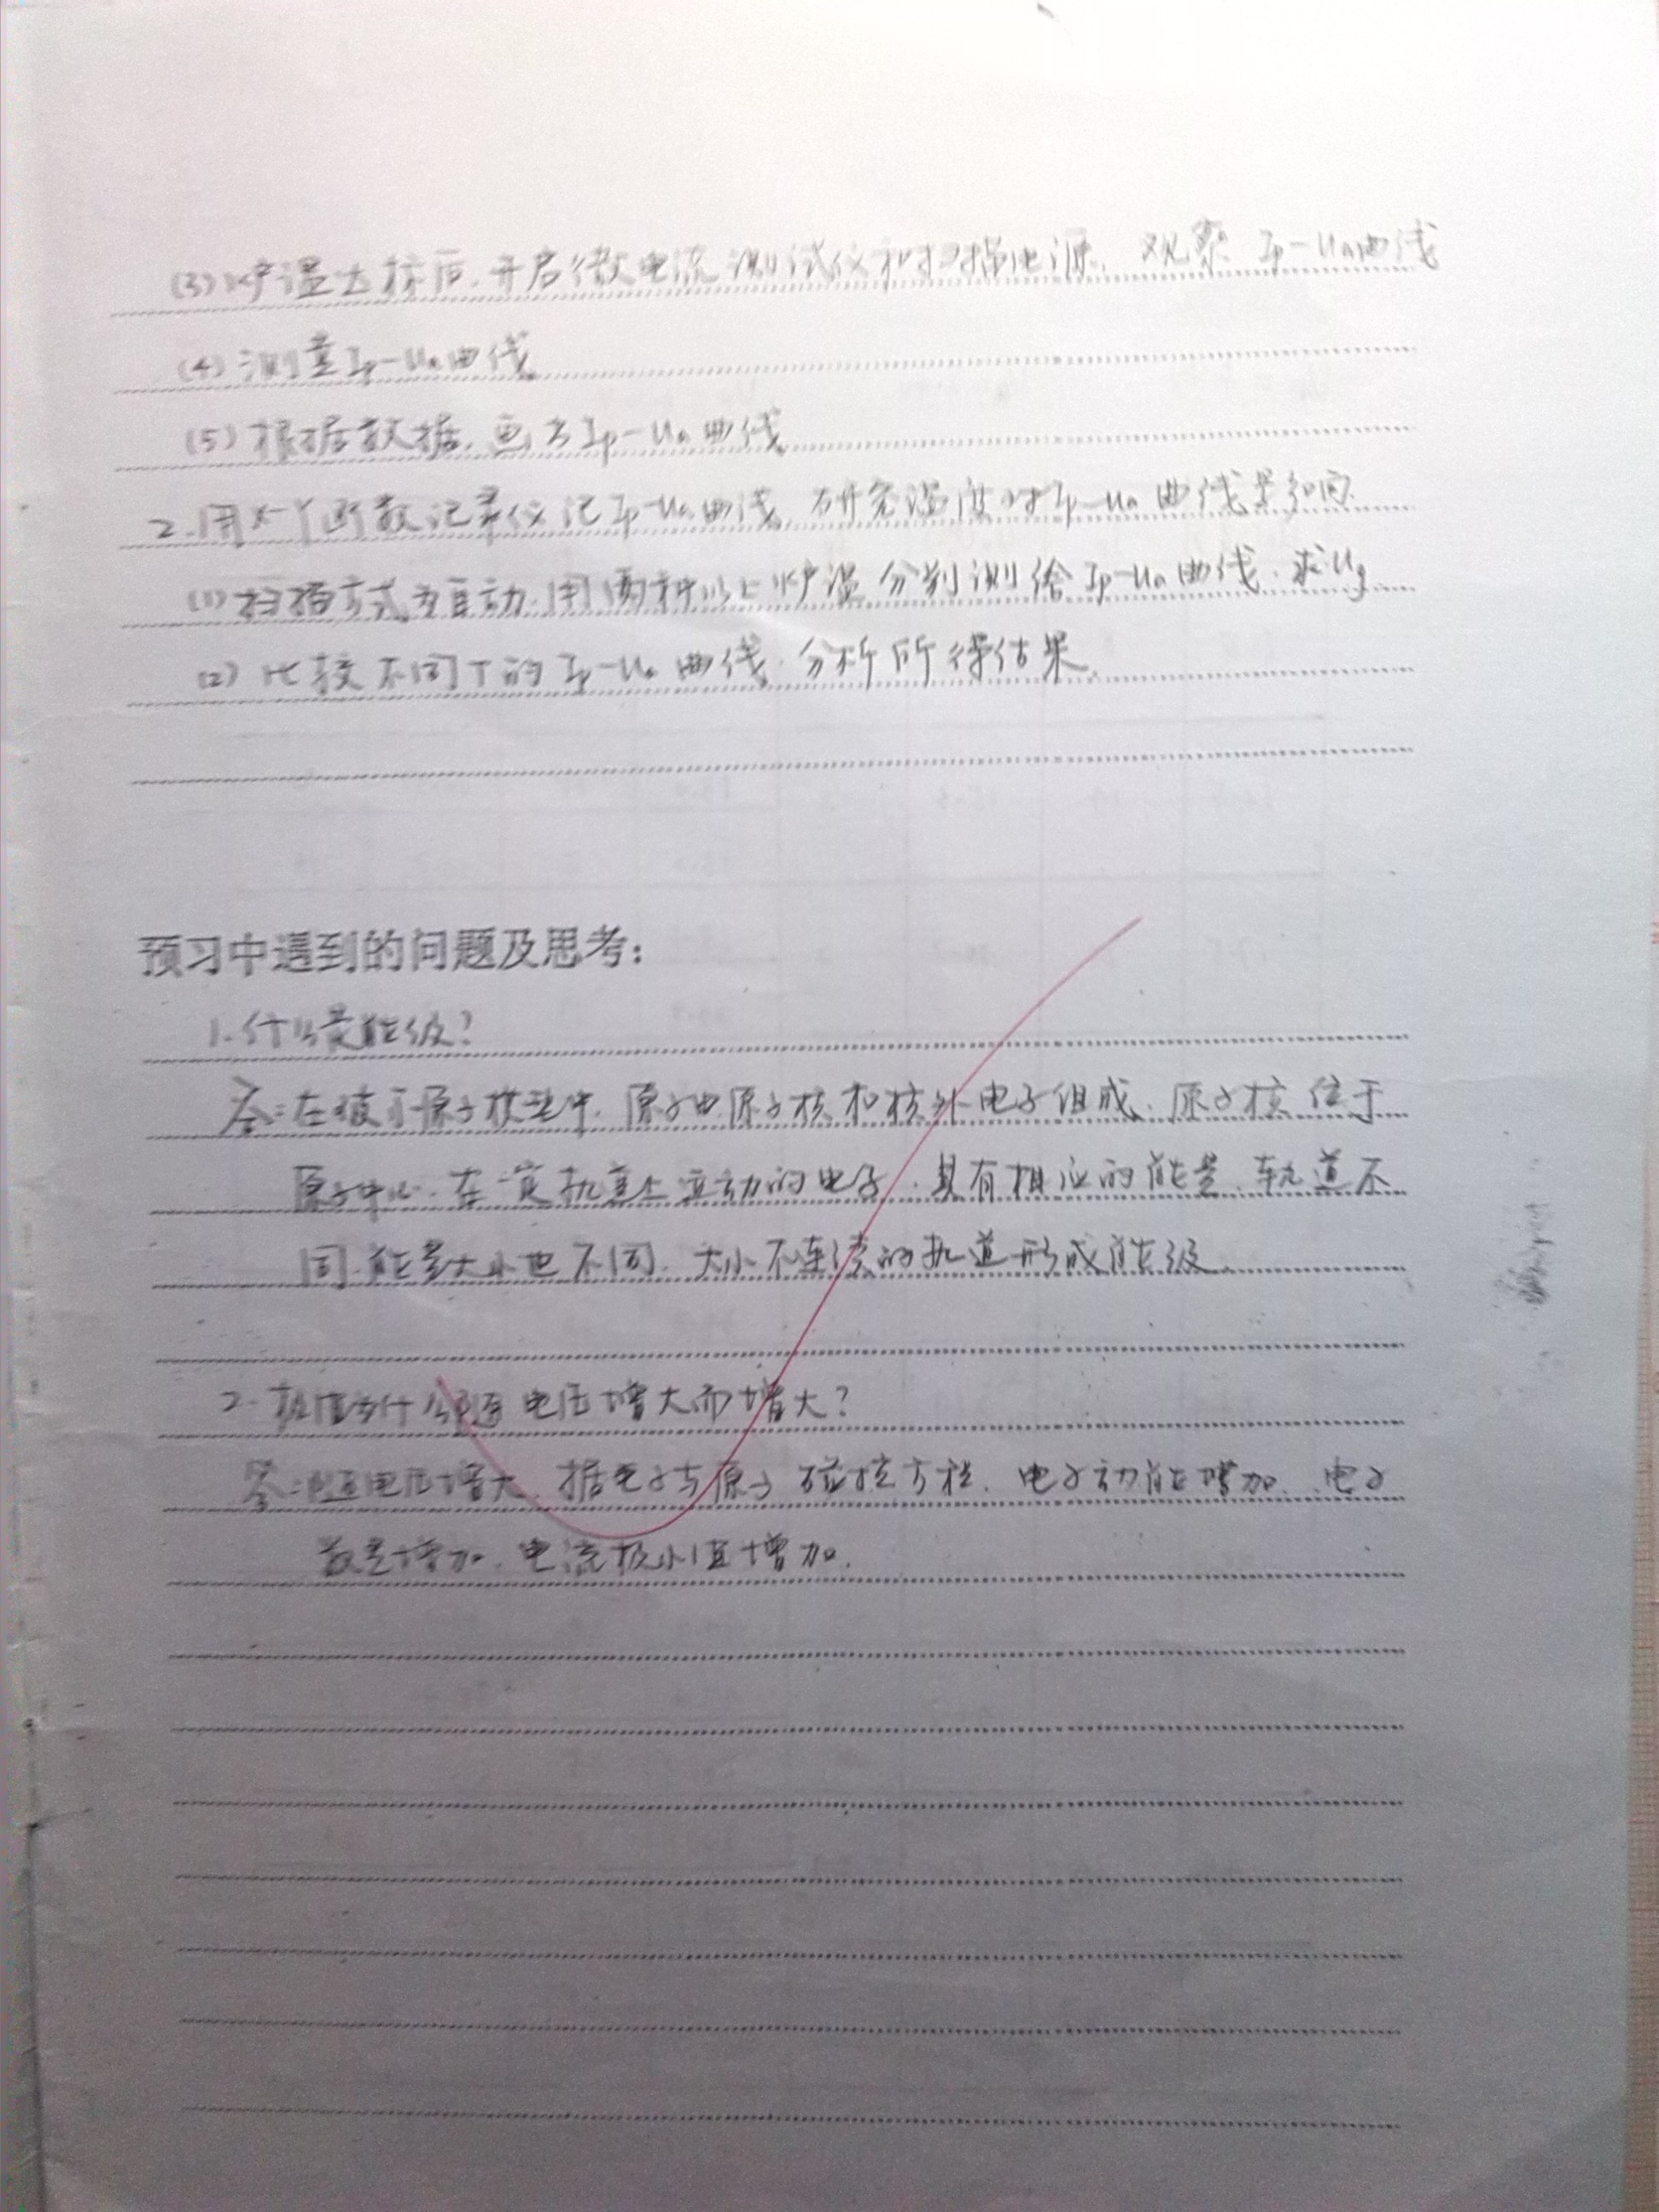 (3)炉温达标后,开启微电流测试仪和扫描电源,观察 Ip-Ua曲线
(4)测量Ip-Ua曲线
(5)根据数据,画出Ip-Ua曲线
2.用X-Y函数记录仪记Ip-Ua曲线,研究温度对Ip-Ua曲线影响.
(1)扫描方式为自动,用两种以上炉温分别测绘Ip-Ua曲线,求Ug
(2)比较不同T的Ip-Ua曲线,分析所得结果.
预习中遇到的问题及思考:
1.什么是能级?
答:在玻尔原子模型中,原子由原子核和核外电子组成,原子核位于
原子中心,在一定轨道上运动的电子,具有相应的能量,轨道不
同,能量大小也不同,大小不连续的轨道形成能级.
2. 为什么 电压增大而增大?
答: 电压增大,据电子与原子碰撞方程,电子动能增加,电子
数量增加,电流极小值增加.